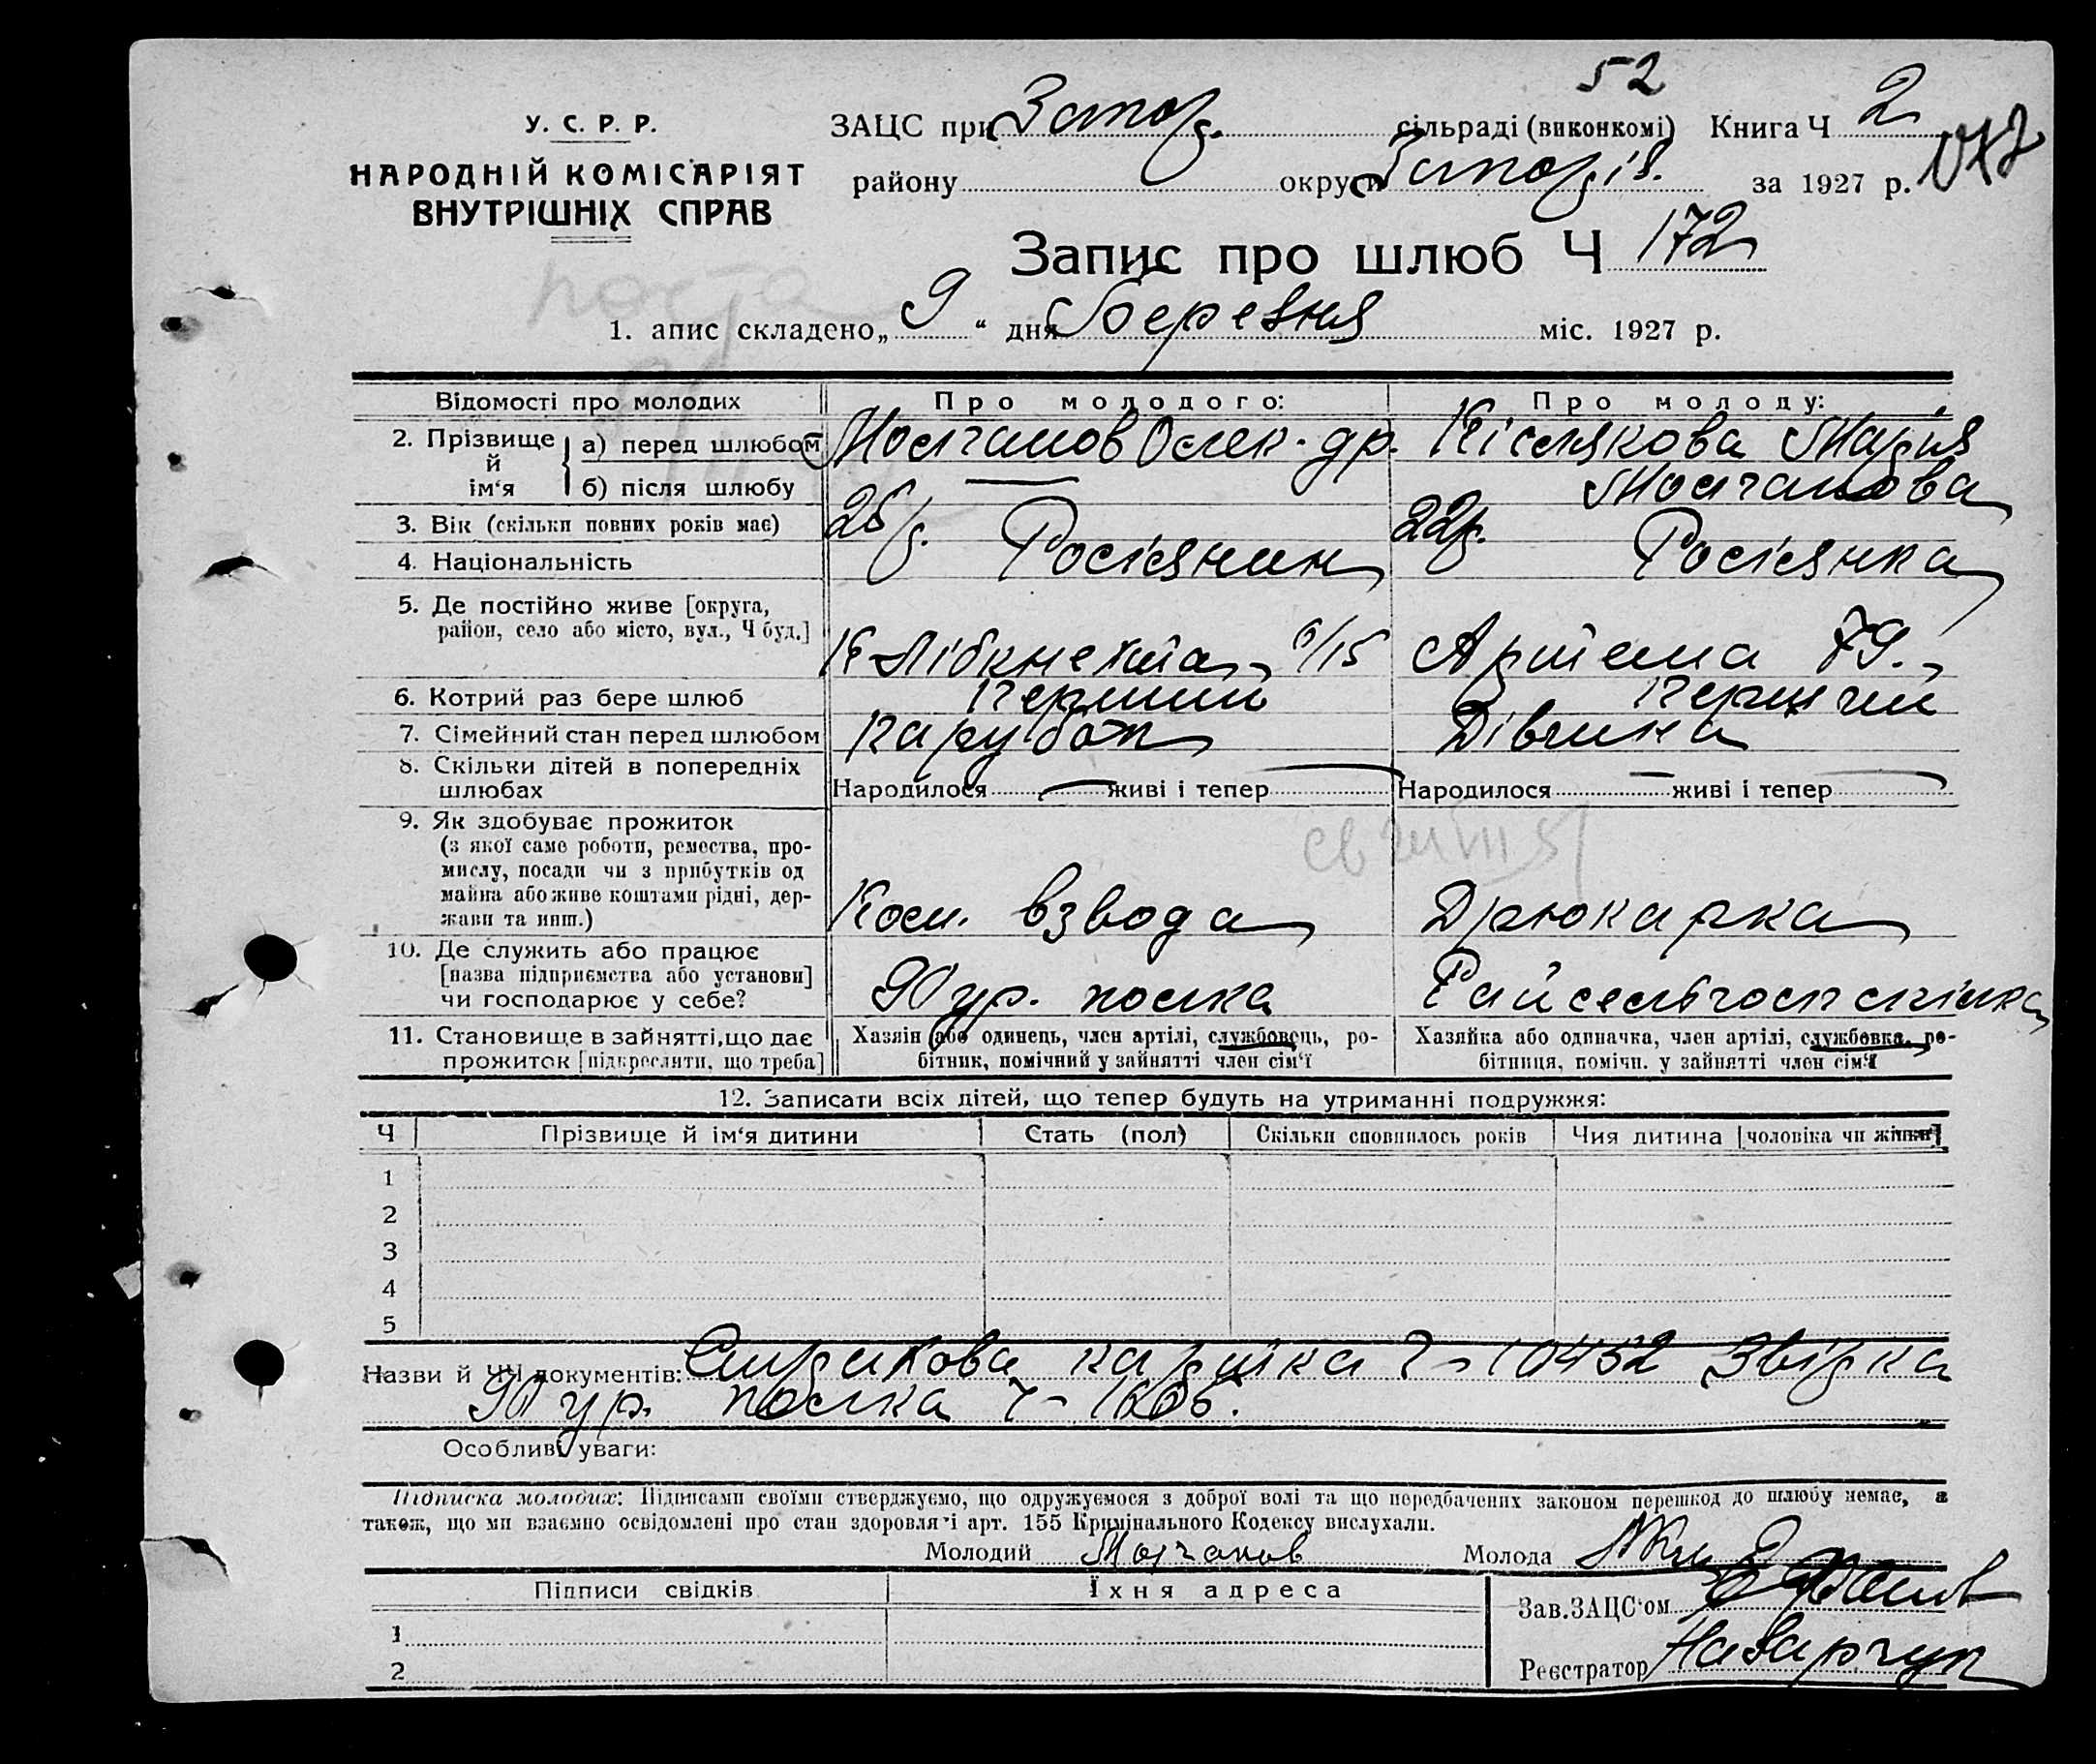 52
У. С. Р. Р.
НАРОДНІЙ КОМІСАРІЯТ
ВНУТРІШНІХ СПРАВ
ЗАЦС при Запоρ. сільраді (виконкомі) Книга Ч 2
району округи Запоріз. за 1927 р.
Запис про шлюб Ч 172
1. апис складено „ 9 “ дня Березня міс. 1927 р.
Відомості про молодих Про молодого: Про молоду:
2. Прізвище й ім‘я
а) перед шлюбом Молчанов Олек-др. Кіслякова Марія
б) після шлюбу — Молчанова
3. Вік (скільки повних років має) 26 р. 22 р.
4. Національність Росіянин Росіянка
5. Де постійно живе [округа,
район, село або місто, вул., Ч буд.] К Лібкнехта 6/15 Артема 79.
6. Котрий раз бере шлюб Перший Перший
7. Сімейний стан перед шлюбом Парубок Дівчина
8. Скільки дітей в попередніх
шлюбах Народилося — живі і тепер — Народилося — живі і тепер —
9. Як здобуває прожиток
(з якої саме роботи, ремества, про-
мислу, посади чи з прибутків од
майна або живе коштами рідні, дер-
жави та инш.) Ком. взвода Дрюкарка
10. Де служить або працює
[назва підприємства або установи]
чи господарює у себе? 90 ур. полка Райсельгоспспілка
11. Становище в зайнятті, що дає
прожиток [підкреслити, що треба]
Хазяін або одинець, член артілі, службовець, ро-
бітник, помічний у зайнятті член сім‘ї
Хазяйка або одиначка, член артілі, службовка, ро-
бітниця, помічн. у зайнятті член сім‘ї
12. Записати всіх дітей, що тепер будуть на утриманні подружжя:
Ч Прізвище й ім‘я дитини Стать (пол) Скільки сповнилось років Чия дитина [чоловіка чи жінки]
1
2
3
4
5
Назви й ЧЧ документів: картка Ч – 10452
90 ур. полка Ч – 1605.
Особливі уваги:
Підписка молодих: Підписами своїми стверджуємо, що одружуємося з доброї волі та що передбачених законом перешкод до шлюбу немає, а
також, що ми взаємно освідомлені про стан здоровля і арт. 155 Кримінального Кодексу вислухали.
Молодий Молчанов Молода
Підписи свідків Їхня адреса
1
2
Зав. ЗАЦС‘ом
Реєстратор Назарчук